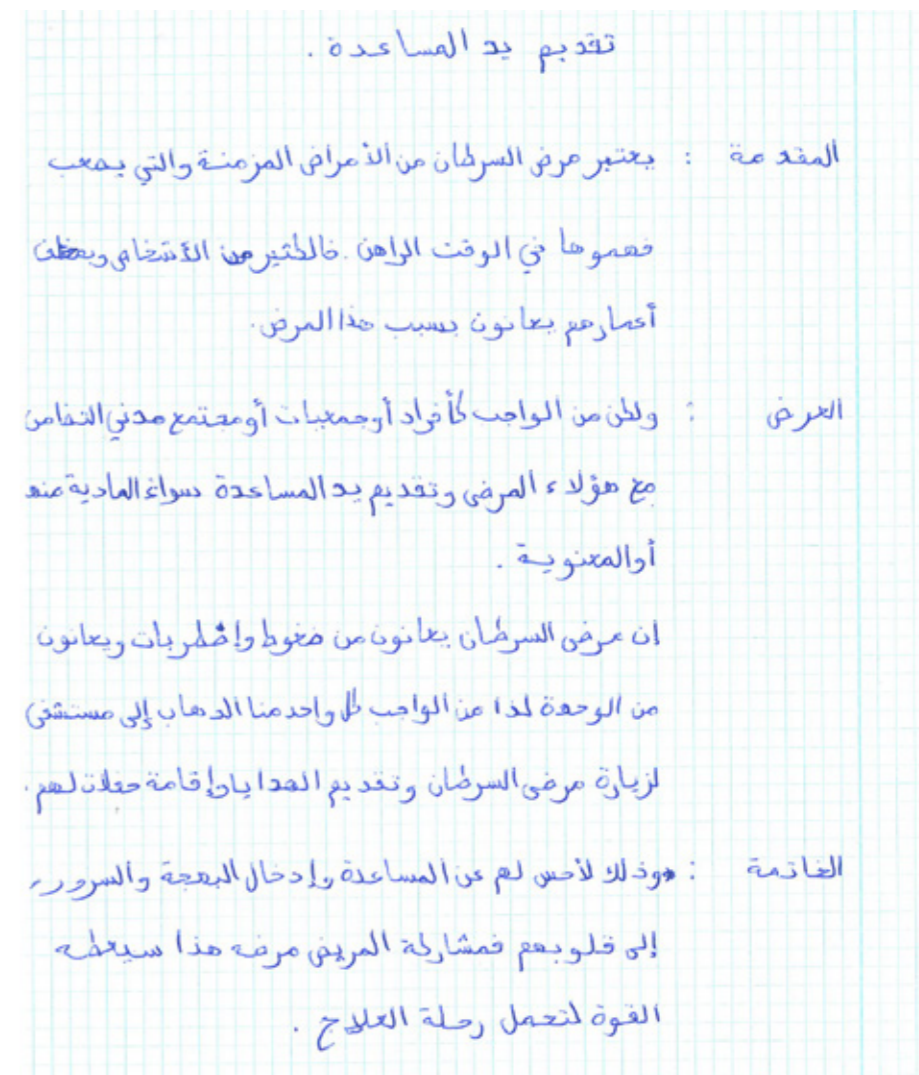 تقديم يد المساعدة .
المقدمة : يعتبر مرض السرطان من الأمراض المزمنة والتي يصعب
فهموها في الوقت الراهن . فالكثير من الأشخاص وبمختلف
أعمارهم يعانون بسبب هذا المرض .
العرض : ولكن من الواجب كأفراد أو جمعيات أو مجتمع مدني التضامن
مع هؤلاء المرضى وتقديم يد المساعدة سواء المادية منه
أو المعنوية .
إن مرضى السرطان يعانون من ضغوط وإضطربات ويعانون
من الوحدة لذا من الواجب كل واحد منا الدهاب إلى مستشفى
لزيارة مرضى السرطان وتقديم الهدايا وإقامة حفلات لهم .
الخاتمة : وذلك لأحس لهم عن المساعدة وإدخال البهجة والسرور
إلى قلوبهم فمشاركة المريض مرضه هذا سيعطه
القوة لتحمل رحلة العلاج .